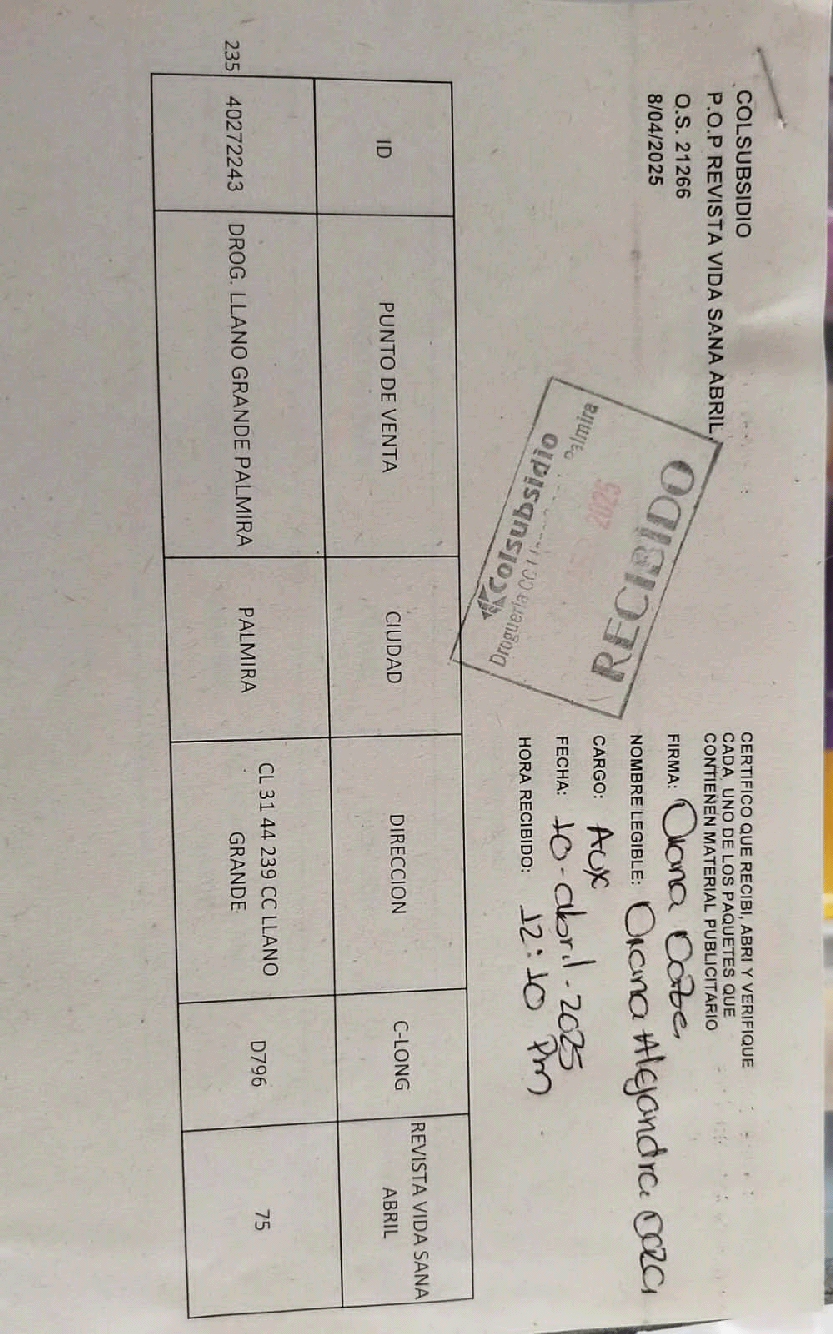 COLSUBSIDIO
P.O.P REVISTA VIDA SANA ABRIL
O.S. 21266
8/04/2025
CERTIFICO QUE RECIBI, ABRI Y VERIFIQUE
CADA UNO DE LOS PAQUETES QUE
CONTIENEN MATERIAL PUBLICITARIO
FIRMA:
NOMBRE LEGIBLE: Alejandra
CARGO: Aux
FECHA: 10-abril-2025
HORA RECIBIDO: 12:10 Pm
RECIBIDO
2025
Colsubsidio
ID PUNTO DE VENTA CIUDAD DIRECCION C-LONG REVISTA VIDA SANA
ABRIL
235 40272243 DROG. LLANO GRANDE PALMIRA PALMIRA CL 31 44 239 CC LLANO
GRANDE D796 75